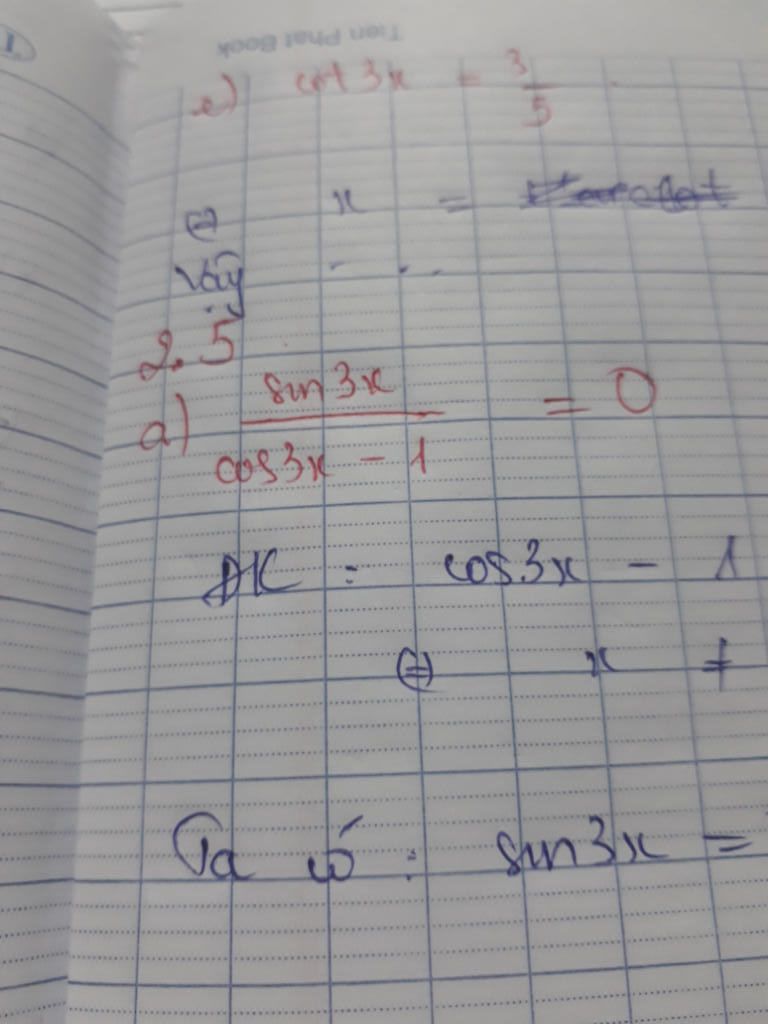 Tien Phat Book
1
e) cot 3x = 3/5
⇔ x =
Vậy ...
2.5
a) sin3x / cos3x - 1 = 0
ĐK : cos3x - 1
⇔ x ≠
Ta có : sin3x =